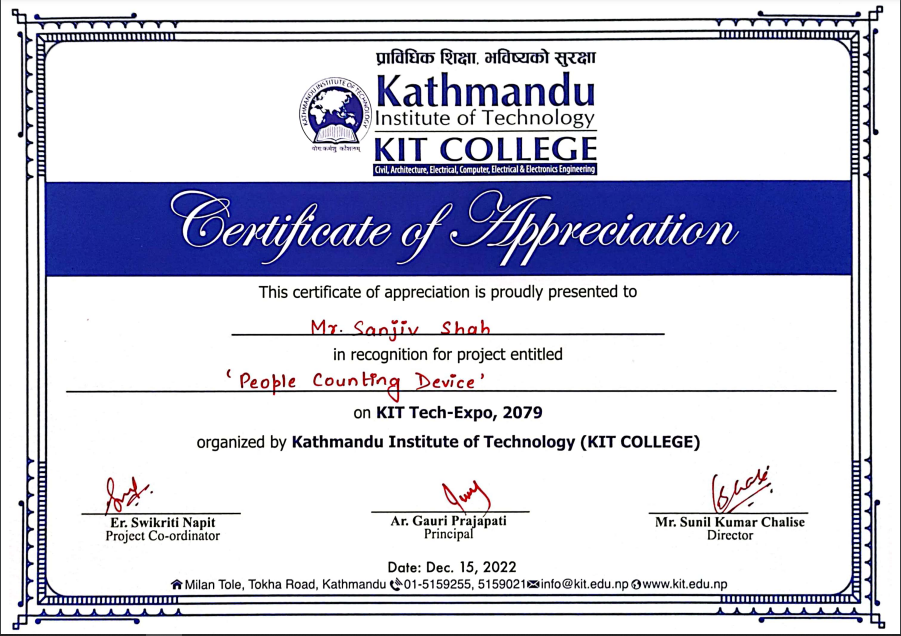 प्राविधिक शिक्षा, भविष्यको सुरक्षा
KATHMANDU INSTITUTE OF TECHNOLOGY
योग कर्मसु कौशलम्
Kathmandu
Institute of Technology
KIT COLLEGE
Civil, Architecture, Electrical, Computer, Electrical & Electronics Engineering
Certificate of Appreciation
This certificate of appreciation is proudly presented to
Mr. Sanjiv Shah
in recognition for project entitled
'People Counting Device'
on KIT Tech-Expo, 2079
organized by Kathmandu Institute of Technology (KIT COLLEGE)
Er. Swikriti Napit
Project Co-ordinator
Ar. Gauri Prajapati
Principal
Mr. Sunil Kumar Chalise
Director
Date: Dec. 15, 2022
Milan Tole, Tokha Road, Kathmandu 01-5159255, 5159021 info@kit.edu.np www.kit.edu.np